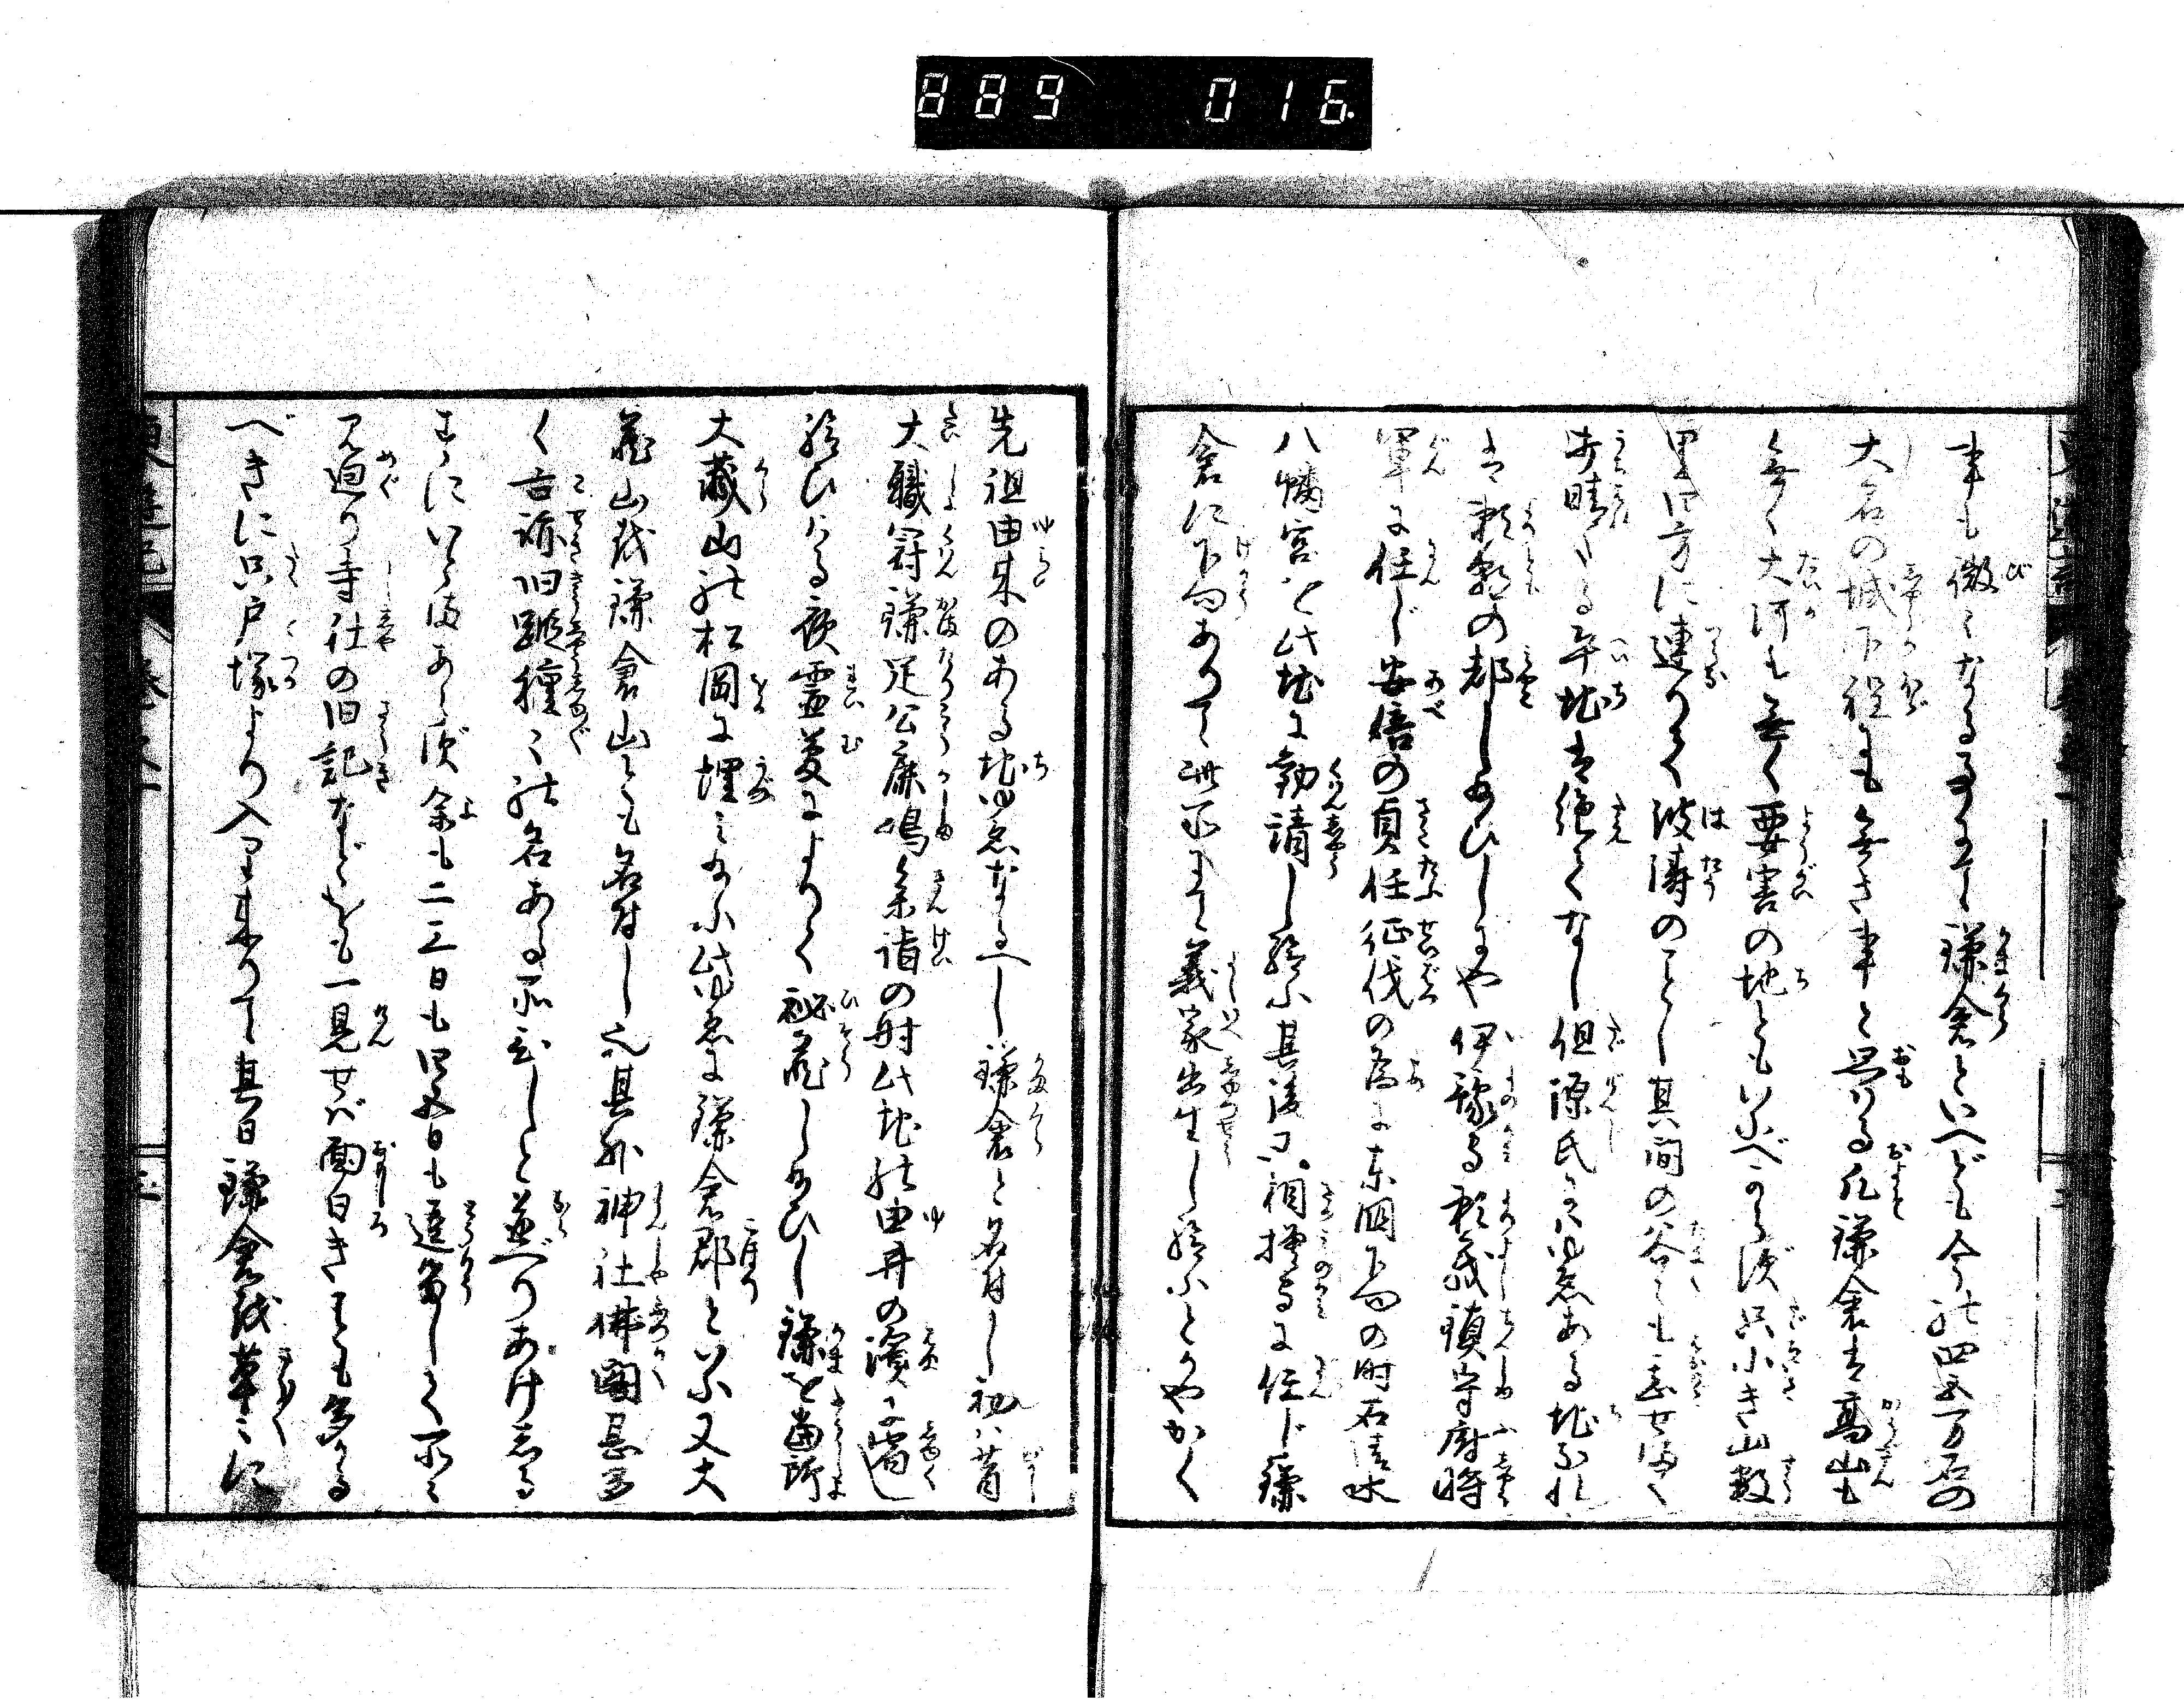 889 016
事も微々なる事にて鎌倉といへども今の四五万石の
大名の城下程にも無き事と思はる凡鎌倉は高山も
無く大河も無く要害の地ともいふべからず只小き山数
里四方に連りて波濤のことし其間の谷々も甚せまく
歩晴たる平地は絶てなし但源氏にはゆゑある地なれ
は頼朝の都し給ひしにや伊豫守頼義鎮守府将
軍に任じ安倍の貞任征伐の為に東国下向の時石清水
八幡宮を此地に勧請し給ふ其後又相摸守に任じ鎌
倉に下向ありて此所にて義家出生し給ふとかやかく
先祖由来のある地ゆゑなるべし鎌倉と名付し初は昔
大職冠鎌足公鹿嶋参詣の時此地の由井の濱に宿し
給ひける夜霊夢によりて秘蔵し給ひし鎌を當所
大蔵山の松岡に埋み給ふ此ゆゑに鎌倉郡といふ又大
蔵山を鎌倉山とも名付し也其外神社佛閣甚多
く古跡旧蹤種々の名ある所おびたゝしと並べりあけしる
すにいとまあらず余も二三日も四五日も逗留して所々
見廻り寺社の旧記などをも一見せば面白き事も多かる
べきに只戸塚より入り来りて其日鎌倉を草々に